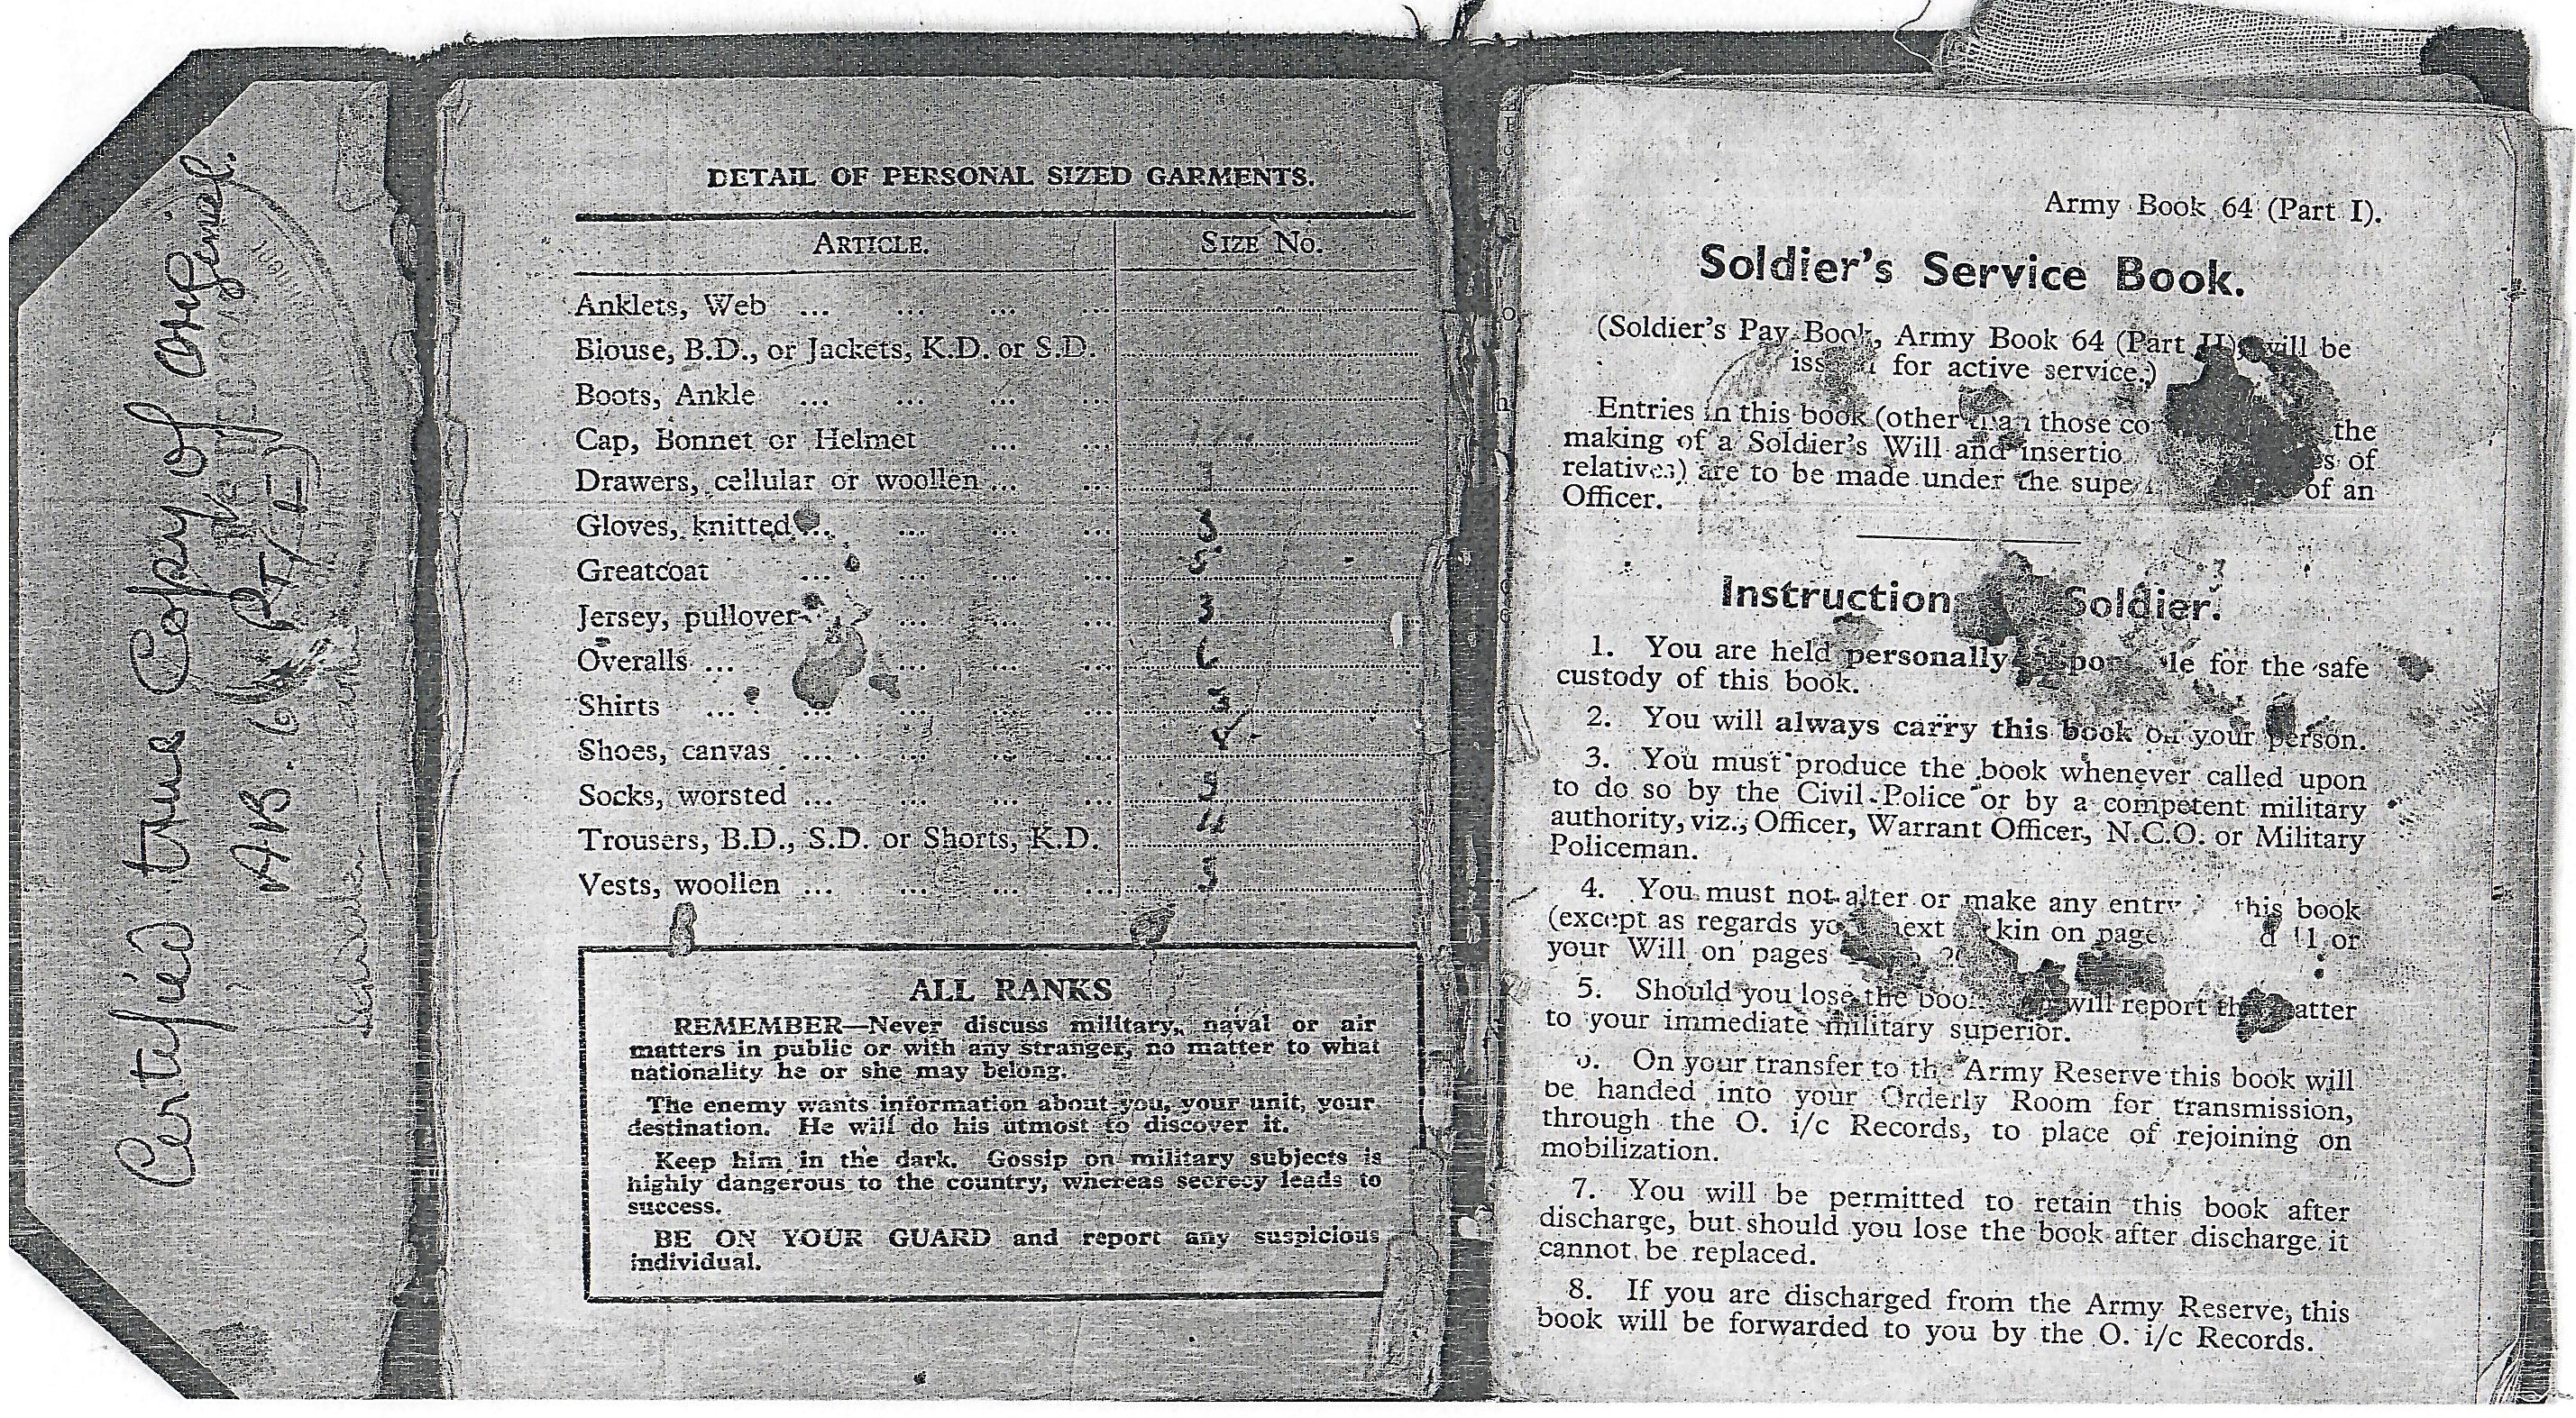 Certified true Copy of original.
AB. 64 PT/I
DETAIL OF PERSONAL SIZED GARMENTS.
ARTICLE. SIZE No.
Anklets, Web ... ... ... ...
Blouse, B.D., or Jackets, K.D. or S.D.
Boots, Ankle ... ... ... ...
Cap, Bonnet or Helmet ... ...
Drawers, cellular or woollen ... ...
Gloves, knitted ... ... ... ... 3
Greatcoat ... ... ... ... 5
Jersey, pullover ... ... ... 3
Overalls ... ... ... ... 6
Shirts ... ... ... ... ... 3
Shoes, canvas ... ... ... ...
Socks, worsted ... ... ... ...
Trousers, B.D., S.D. or Shorts, K.D.
Vests, woollen ... ... ... ...
ALL RANKS
REMEMBER—Never discuss military, naval or air
matters in public or with any stranger, no matter to what
nationality he or she may belong.
The enemy wants information about you, your unit, your
destination. He will do his utmost to discover it.
Keep him in the dark. Gossip on military subjects is
highly dangerous to the country, whereas secrecy leads to
success.
BE ON YOUR GUARD and report any suspicious
individual.
Army Book 64 (Part I).
Soldier's Service Book.
(Soldier's Pay Book, Army Book 64 (Part II), will be
for active service.)
Entries in this book (other than those the
making of a Soldier's Will and of
relatives) are to be made under the of an
Officer.
Instruction Soldier.
1. You are held personally for the safe
custody of this book.
2. You will always carry this book on your person.
3. You must produce the book whenever called upon
to do so by the Civil Police or by a competent military
authority, viz., Officer, Warrant Officer, N.C.O. or Military
Policeman.
4. You must not alter or make any entry this book
(except as regards next kin on or
your Will on pages
5. Should you lose the book will report
to your immediate military superior.
On your transfer to the Army Reserve this book will
be handed into your Orderly Room for transmission,
through the O. i/c Records, to place of rejoining on
mobilization.
7. You will be permitted to retain this book after
discharge, but should you lose the book after discharge it
cannot be replaced.
8. If you are discharged from the Army Reserve, this
book will be forwarded to you by the O. i/c Records.